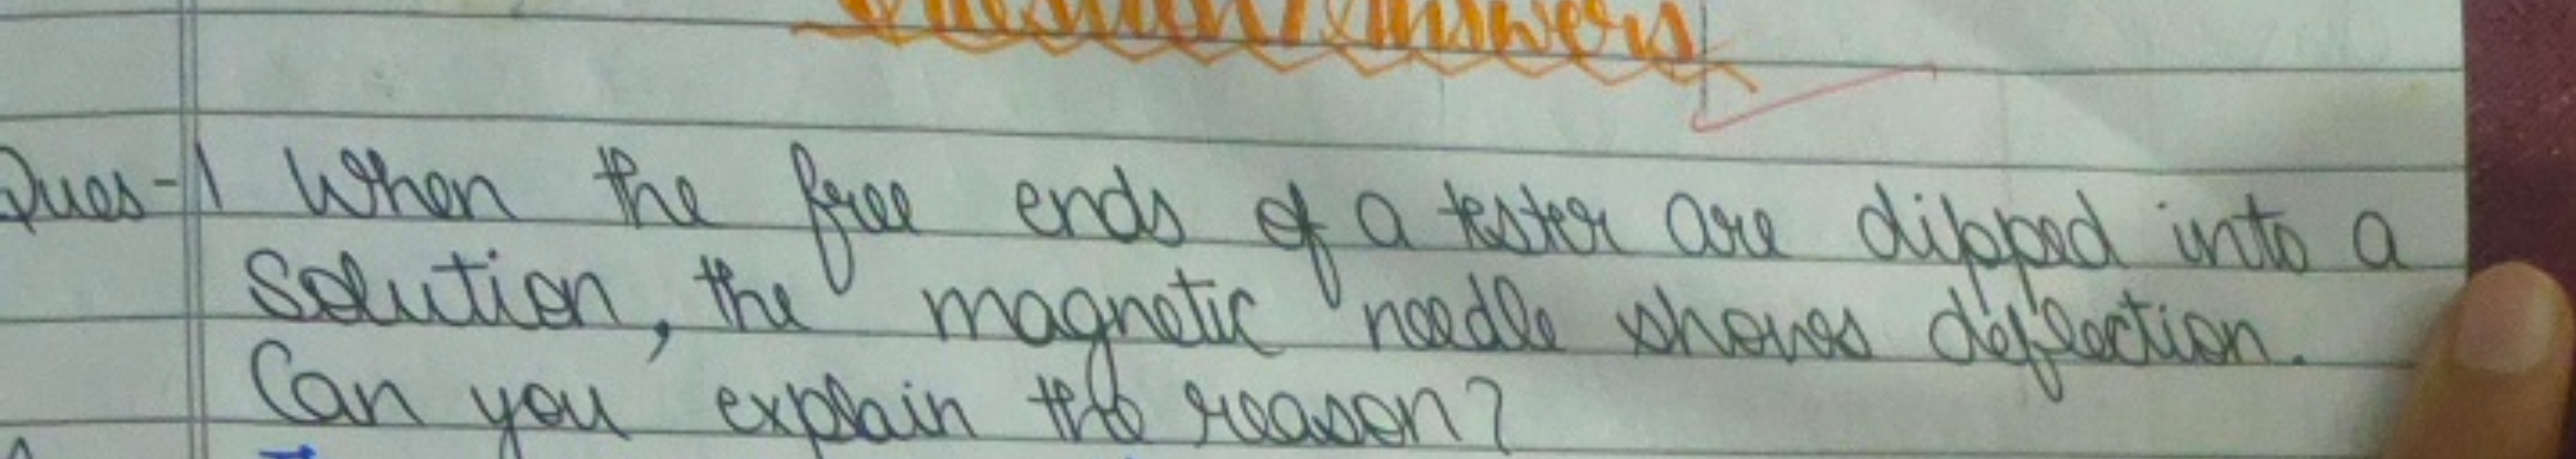 Question/Answers
Ques-1 When the free ends of a tester are dipped into a
Solution, the magnetic needle shows deflection.
Can you explain the reason?